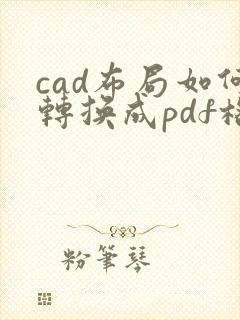 cad布局如何
轉換成pdf格
粉筆琴